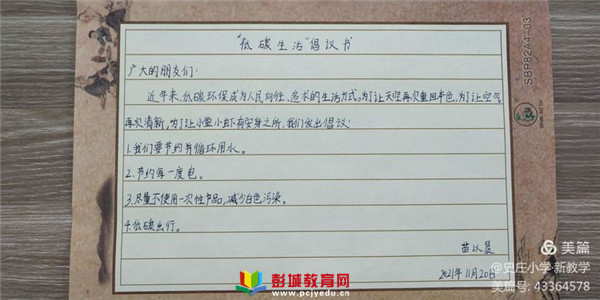 "低碳生活"倡议书
广大的朋友们：
近年来，低碳环保成为人民向往、追求的生活方式。为了让天空再次重回本色，为了让空气
再次清新，为了让小鱼小虾有安身之所，我们发出倡议：
1.我们要节约并循环用水。
2.节约每一度电。
3.尽量不使用一次性产品，减少白色污染。
4.低碳出行。
苗以晨
2021年11月20日
SBP82A4-03
彭城教育网
www.pcjyedu.cn
美篇
@史庄小学·新教学
美篇号：43364578